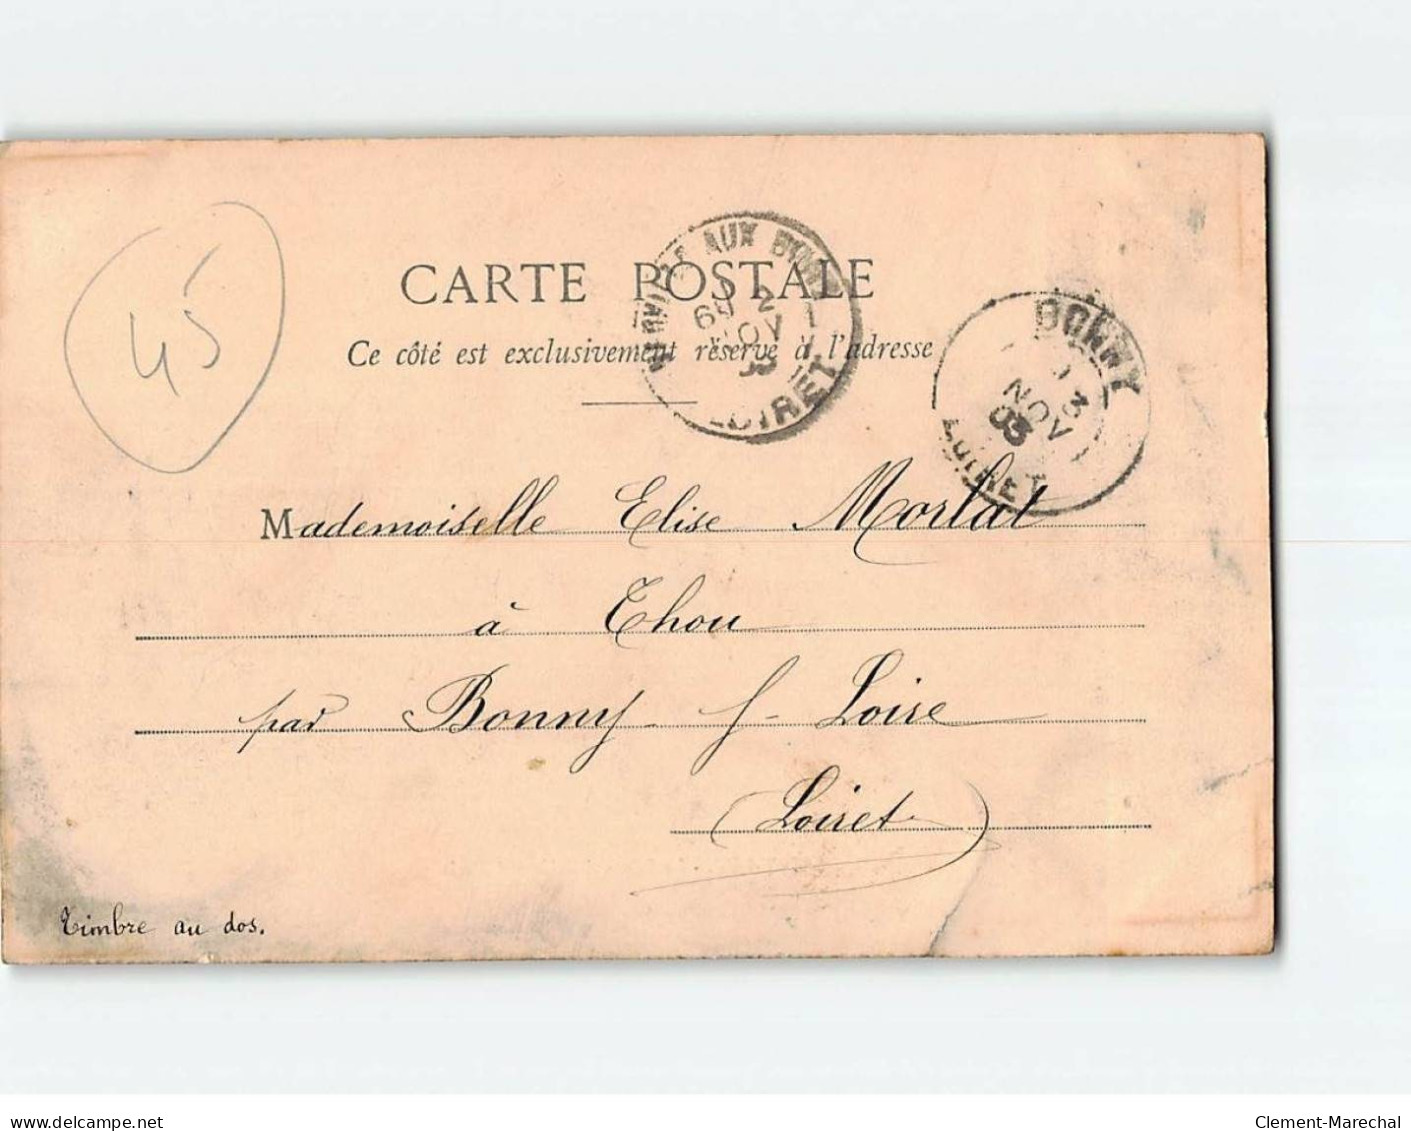 45
CARTE POSTALE
Ce côté est exclusivement réservé à l'adresse
AUX
NOV
LOIRET
BONNY
3
NOV
03
LOIRET
Mademoiselle Elise Morlat
à Thou
par Bonny s- Loire
(Loiret)
Timbre au dos.
www.delcampe.net
Clement-Marechal